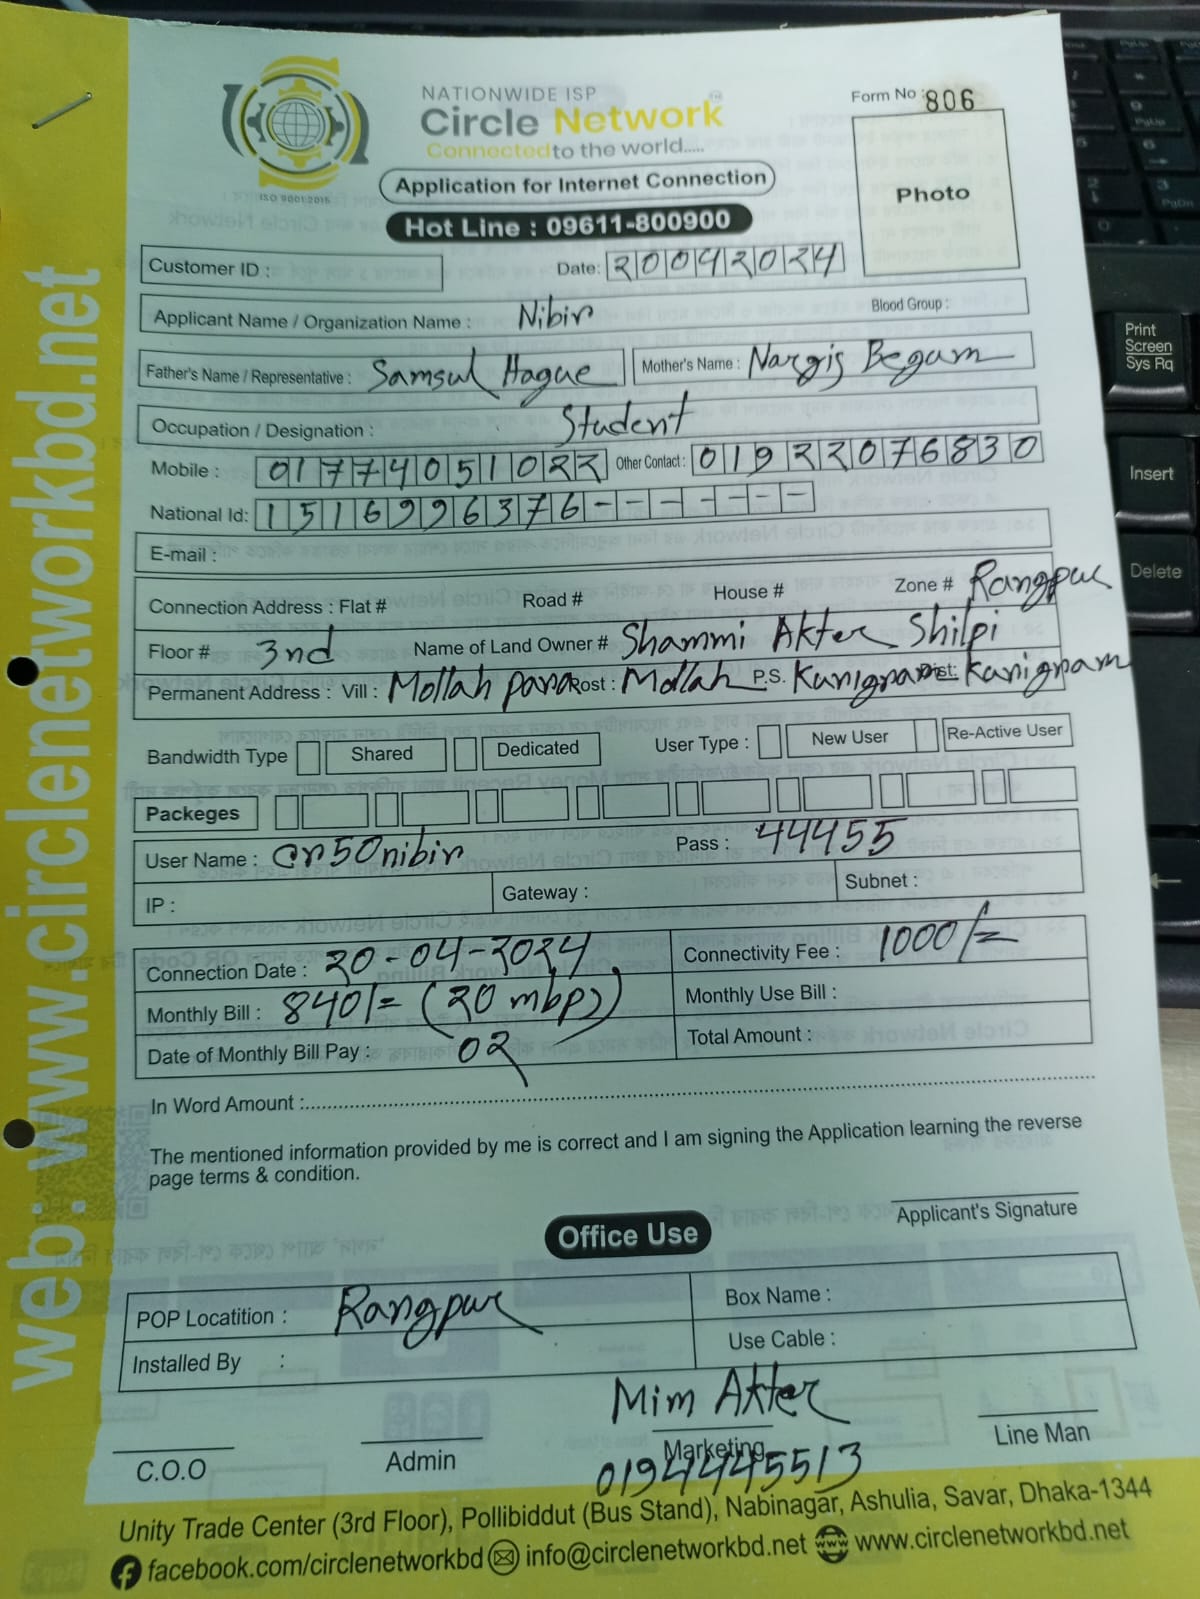 web: www.circlenetworkbd.net
NATIONWIDE ISP
Circle Network
Connected to the world.....
ISO 9001:2015
Form No : 806
Photo
Application for Internet Connection
Hot Line : 09611-800900
Customer ID :
Date: 20042024
Applicant Name / Organization Name : Nibir
Blood Group :
Father's Name / Representative : Samsul Haque
Mother's Name : Nargis Begum
Occupation / Designation : Student
Mobile : 01774051022
Other Contact : 01922076830
National Id: 1516996376-------
E-mail :
Connection Address : Flat # Road # House # Zone # Rangpur
Floor # 3nd Name of Land Owner # Shammi Akter Shilpi
Permanent Address : Vill : Mollah para Post : Mollah P.S. Kurigram Dist: Kurigram
Bandwidth Type Shared Dedicated User Type : New User Re-Active User
Packeges
User Name : cr50nibir Pass : 44455
IP : Gateway : Subnet :
Connection Date : 20-04-2024 Connectivity Fee : 1000/=
Monthly Bill : 840/= (20 mbps) Monthly Use Bill :
Date of Monthly Bill Pay : 02 Total Amount :
In Word Amount :
The mentioned information provided by me is correct and I am signing the Application learning the reverse
page terms & condition.
Applicant's Signature
Office Use
POP Locatition : Rangpur Box Name :
Installed By : Use Cable :
Mim Akter
C.O.O Admin Marketing Line Man
01944445513
Unity Trade Center (3rd Floor), Pollibiddut (Bus Stand), Nabinagar, Ashulia, Savar, Dhaka-1344
facebook.com/circlenetworkbd info@circlenetworkbd.net www.circlenetworkbd.net
Print
Screen
Sys Rq
Insert
Delete